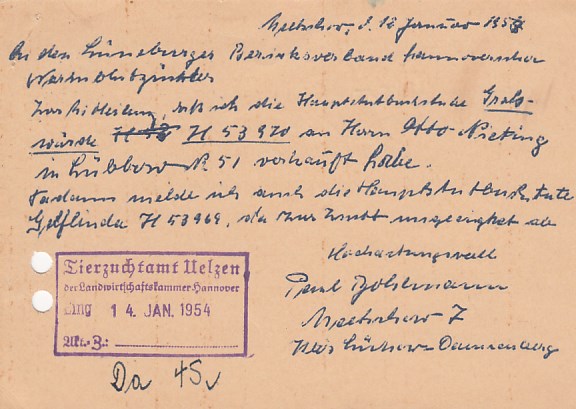 d. 12 Januar 1954
An den Lüneburger Bezirksverband hannoverscher
Warmblutzüchter
Zur Mitteilung, daß ich die Hauptstutbuchstute Grals-
würde H 53970 an Herrn Otto
in Lübbow N. 51 verkauft habe.
Sodann melde ich auch die Hauptstutbuchstute
Gelflinda H 53969, da zur Zucht ungeeignet ab
Hochachtungsvoll
Paul
Kreis Lüchow-Dannenberg
Tierzuchtamt Uelzen
der Landwirtschaftskammer Hannover
Eing 14. JAN. 1954
Akt.-Z.:
Da 45